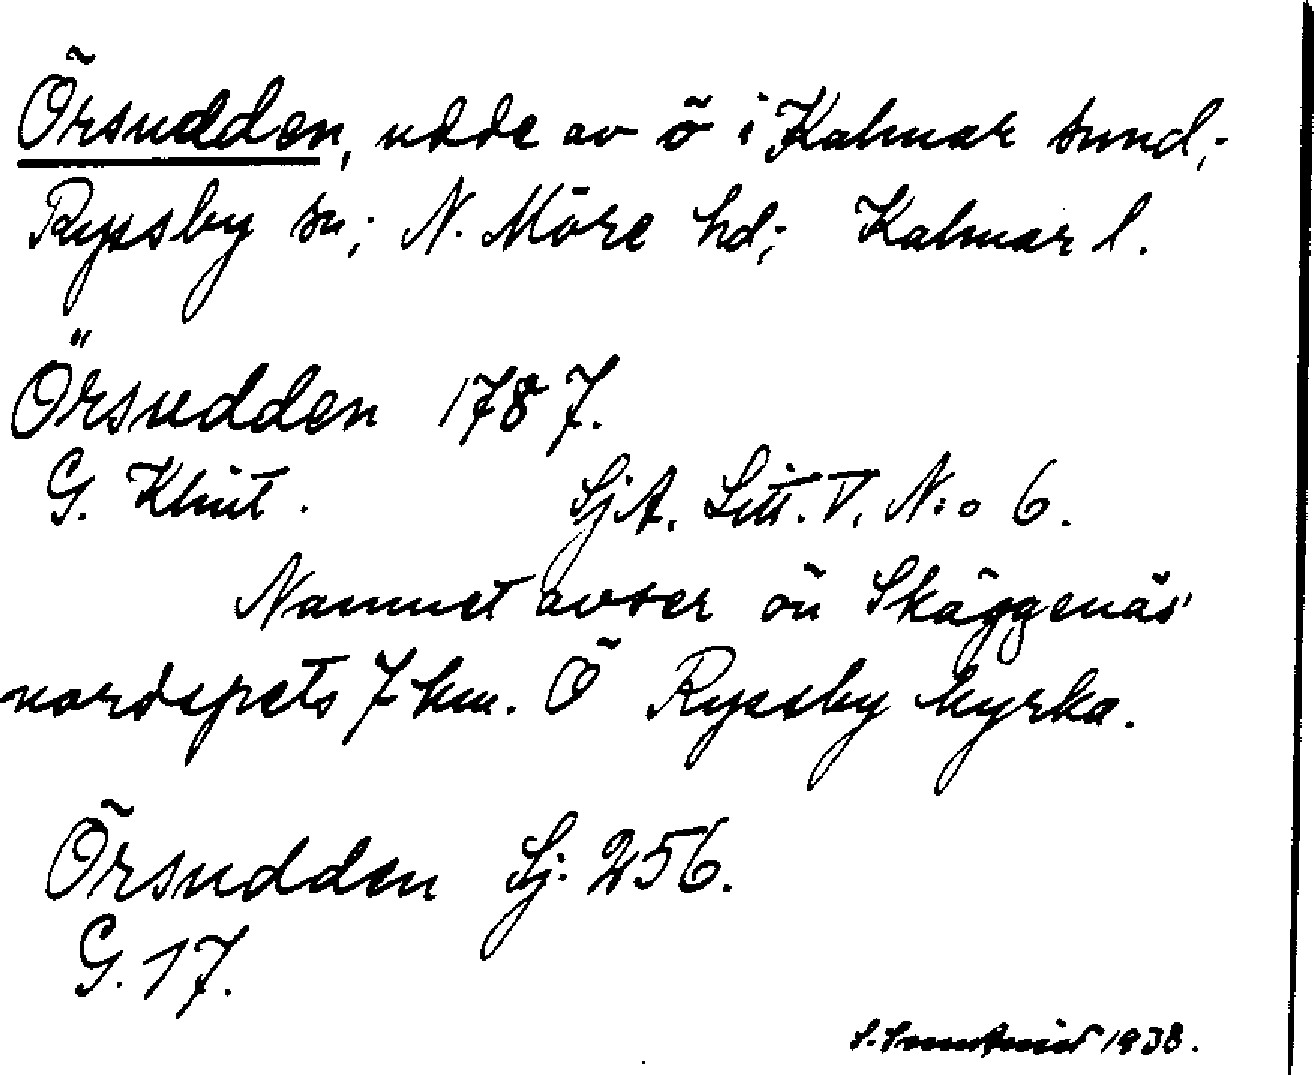 Örsudden, udde av ö i Kalmar sund;
Ryssby sn; N. Möre hd; Kalmar l.
Örsudden 1787.
G. Klint. SjA. Litt. V. N:o 6.
Namnet avser ön Skäggenäs'
nordspets 7 km. Ö Ryssby kyrka.
Örsudden Sj. 256.
G. 17.
1938.